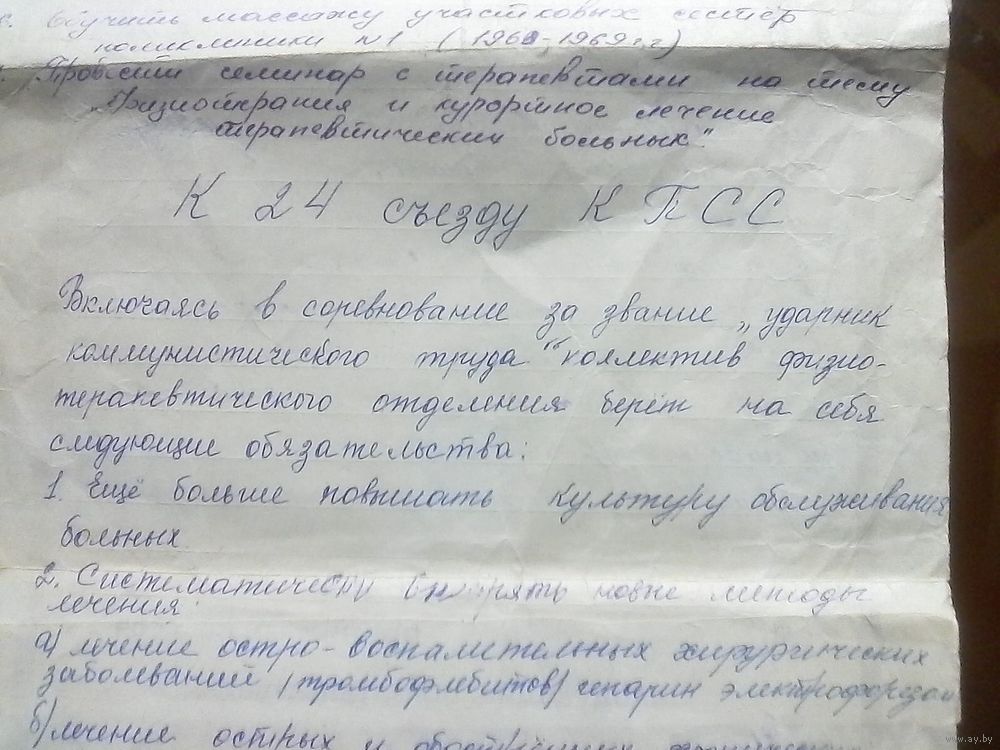 Обучить массажу участковых сестёр
поликлиники №1 (1968-1969 г.г)
Провести семинар с терапевтами на тему
„Физиотерапия и курортное лечение
терапевтических больных".
К 24 съезду КПСС
Включаясь в соревнование за звание „ударник
коммунистического труда" коллектив физио-
терапевтического отделения берёт на себя
следующие обязательства:
1. Ещё больше повышать культуру обслуживания
больных.
2. Систематически внедрять новые методы
лечения:
а) лечение остро-воспалительных хирургических
заболеваний (тромбофлебитов) гепарин электрофорезом
б) лечение острых и
www.ay.by